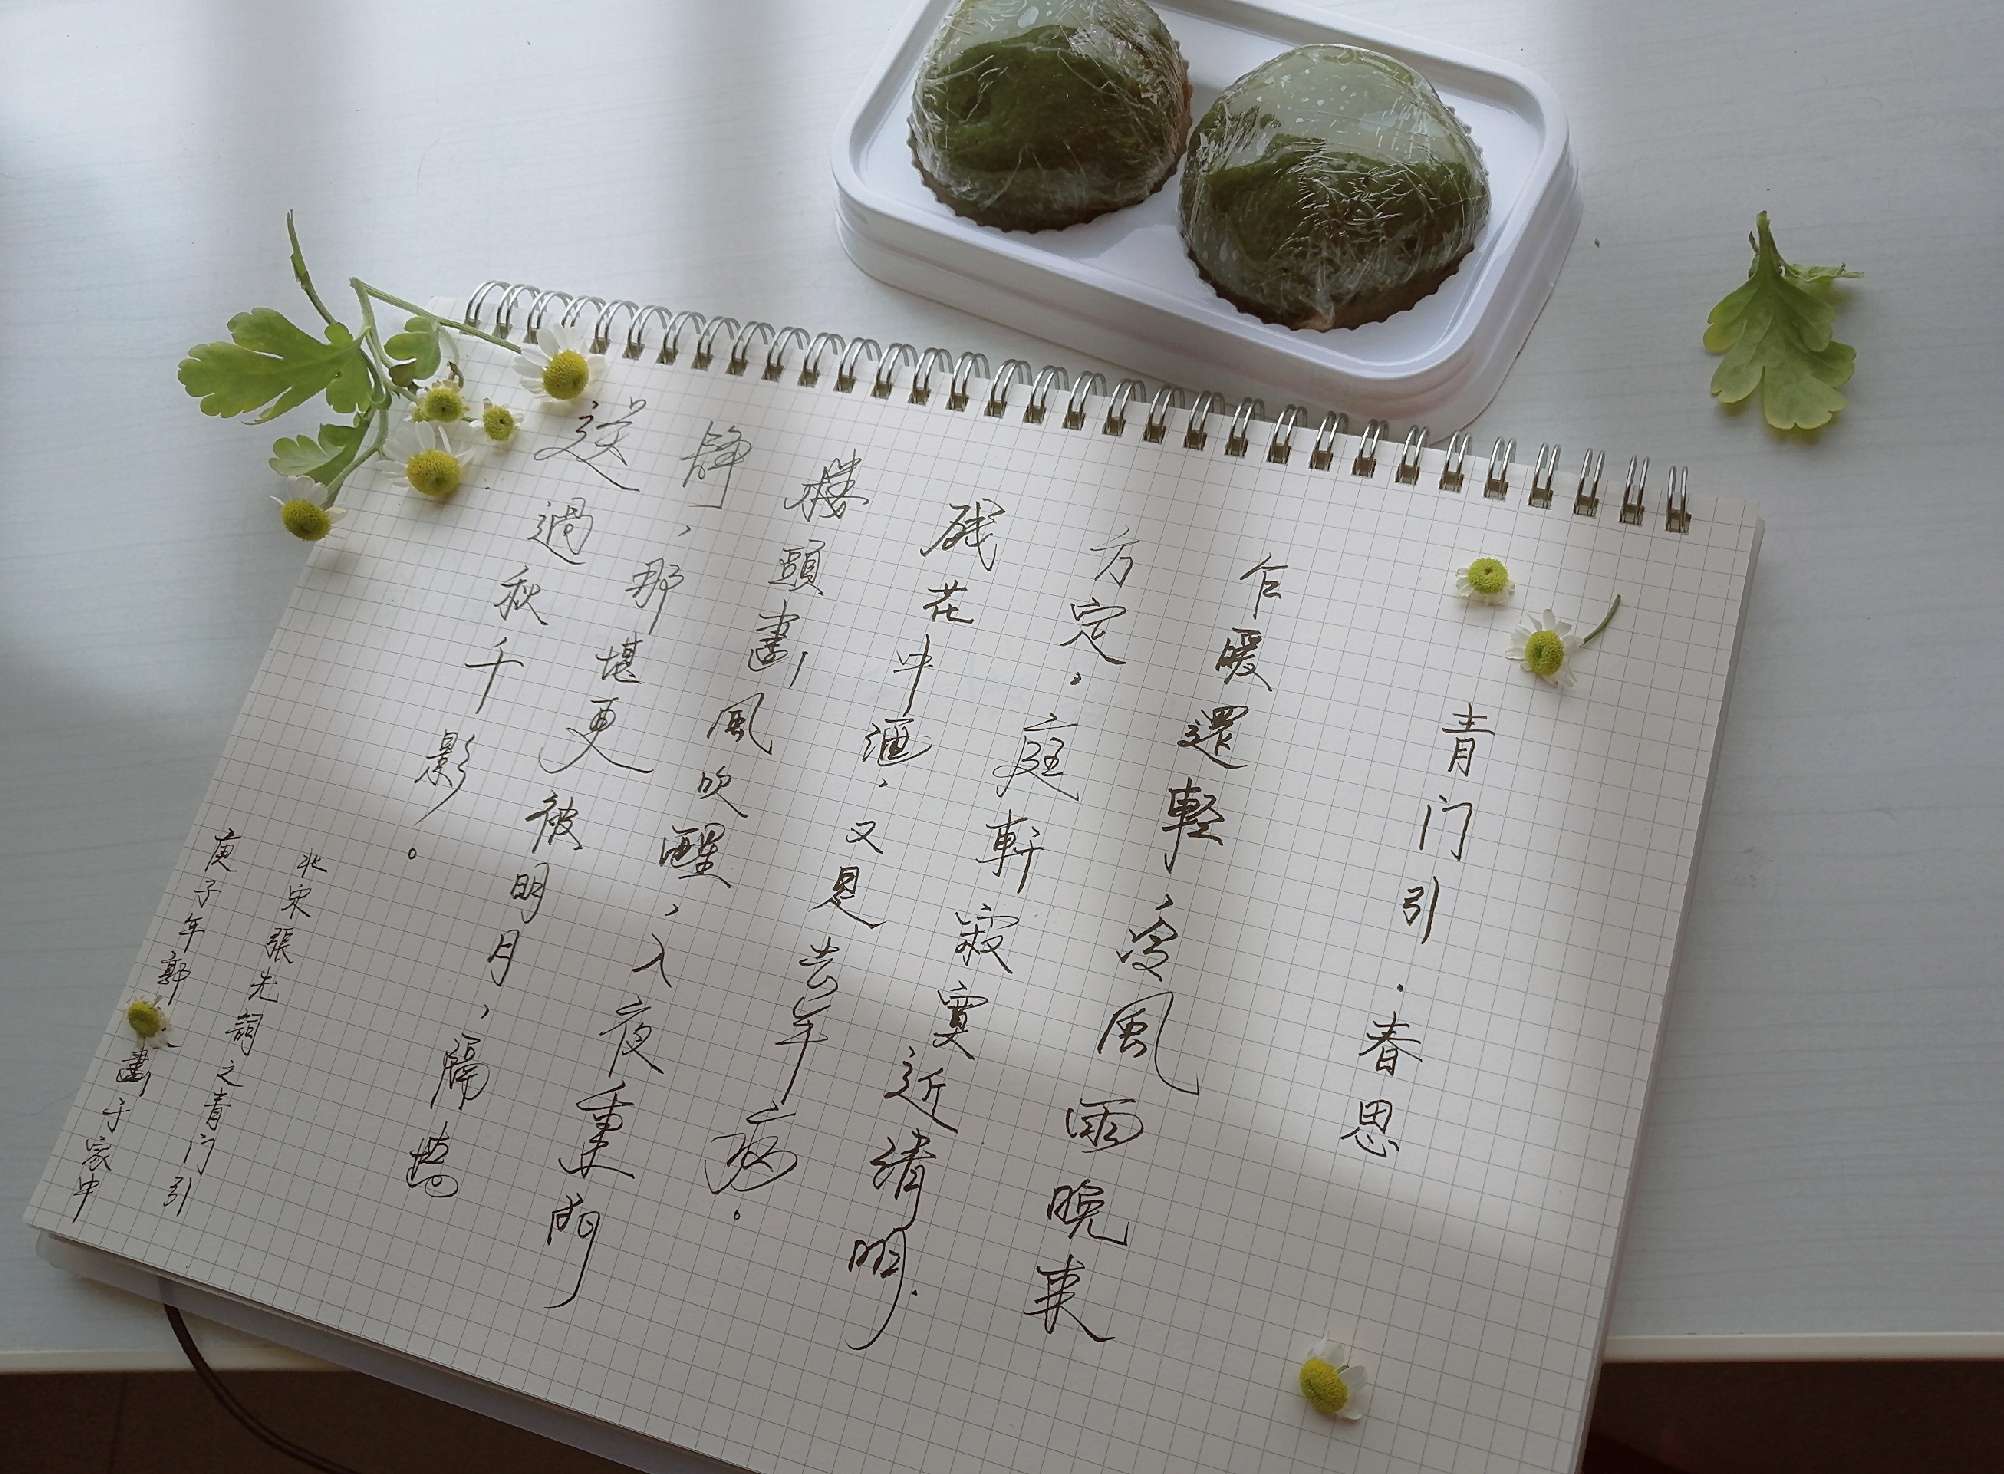 青门引·春思
乍暖還輕冷,風雨晚来
方定,庭軒寂寞近清明.
残花中酒,又是去年病.
樓頭畫角風吹醒,入夜重門
静,那堪更被明月,隔墙
送過秋千影。
北宋張先詞之青门引
庚子年郭 書于家中